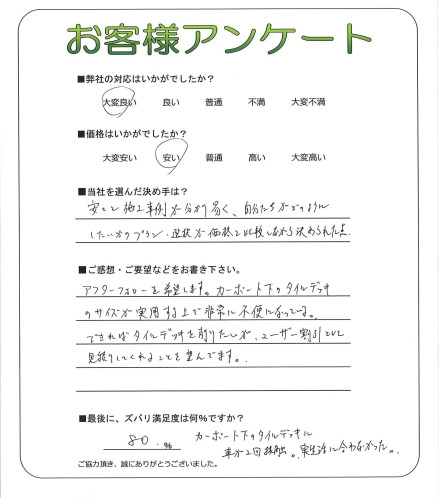 お客様アンケート
■弊社の対応はいかがでしたか?
大変良い 良い 普通 不満 大変不満
■価格はいかがでしたか?
大変安い 安い 普通 高い 大変高い
■当社を選んだ決め手は?
安さと施工事例が分かり易く、自分たちがどのように
したいかのプラン・選択が価格と比較しながら決められた点
■ご感想・ご要望などをお書き下さい。
アフターフォローを希望します。カーポート下のタイルデッキ
のサイズが実用する上で非常に不便になっている。
できればタイルデッキを削りたいが、ユーザー割引として
見積りしてくれることを望んでます。
■最後に、ズバリ満足度は何%ですか?
80.%
カーポート下のタイルデッキに
車が2回接触。実生活に合わなかった。
ご協力頂き、誠にありがとうございました。